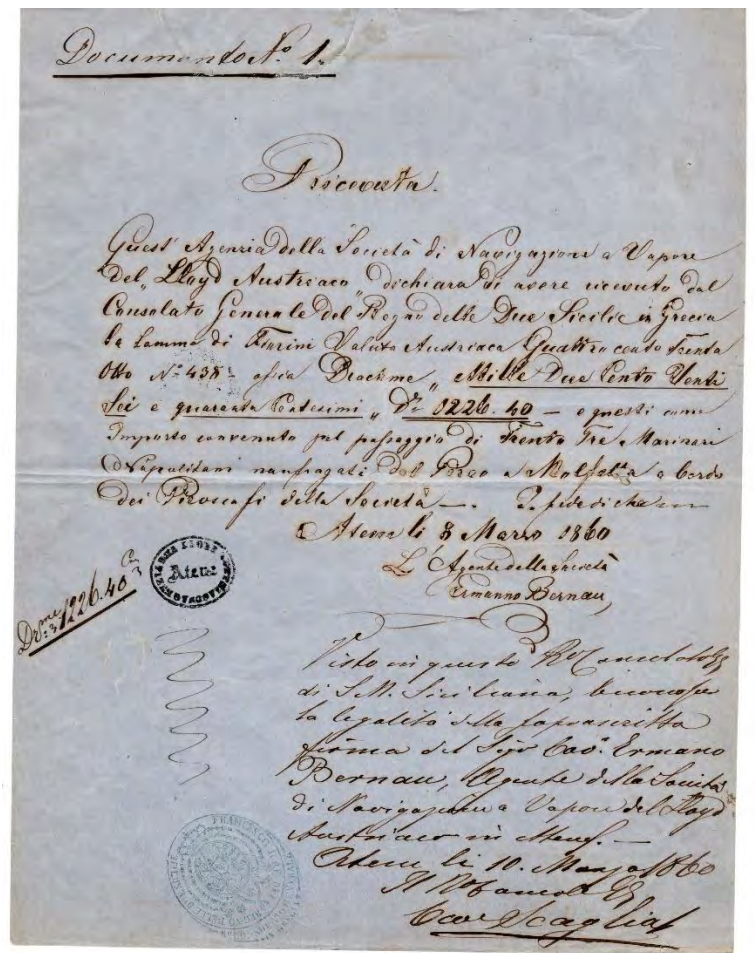 Documento Nº 1.
Ricevuta.
Quest' Agenzia della Società di Navigazione a Vapore
del „Lloyd Austriaco" dichiara di avere ricevuto dal
Consolato Generale del Regno delle Due Sicilie in Grecia
la Somma di Fiorini Valuta Austriaca Quattrocento Trenta
Otto Nº 438 – ossia Dracme „Mille Due Cento Venti
Sei e quaranta Centesimi„ Dr 1226.40 – e questi come
Importo convenuto pel passaggio di Trenta Tre Marinari
Napolitani naufragati dal Pireo a Molfetta a bordo
dei Piroscafi della Società –. I. fede di che
Atene li 8 Marzo 1860
L'Agente della Società
Ermanno Bernau
Atene
Drme 1226.40
Visto in questo Rl Consolato Gle
di S. M. Siciliana, per
la legalità della soprascritta
firma del Sigr Cavr. Ermano
Bernau, Agente della Società
di Navigazione a Vapore del Lloyd
Austriaco in Atene. –
Atene li 10. Marzo 1860
Il Rl Console Gle
Cavr Scaglia
FRANCESCO